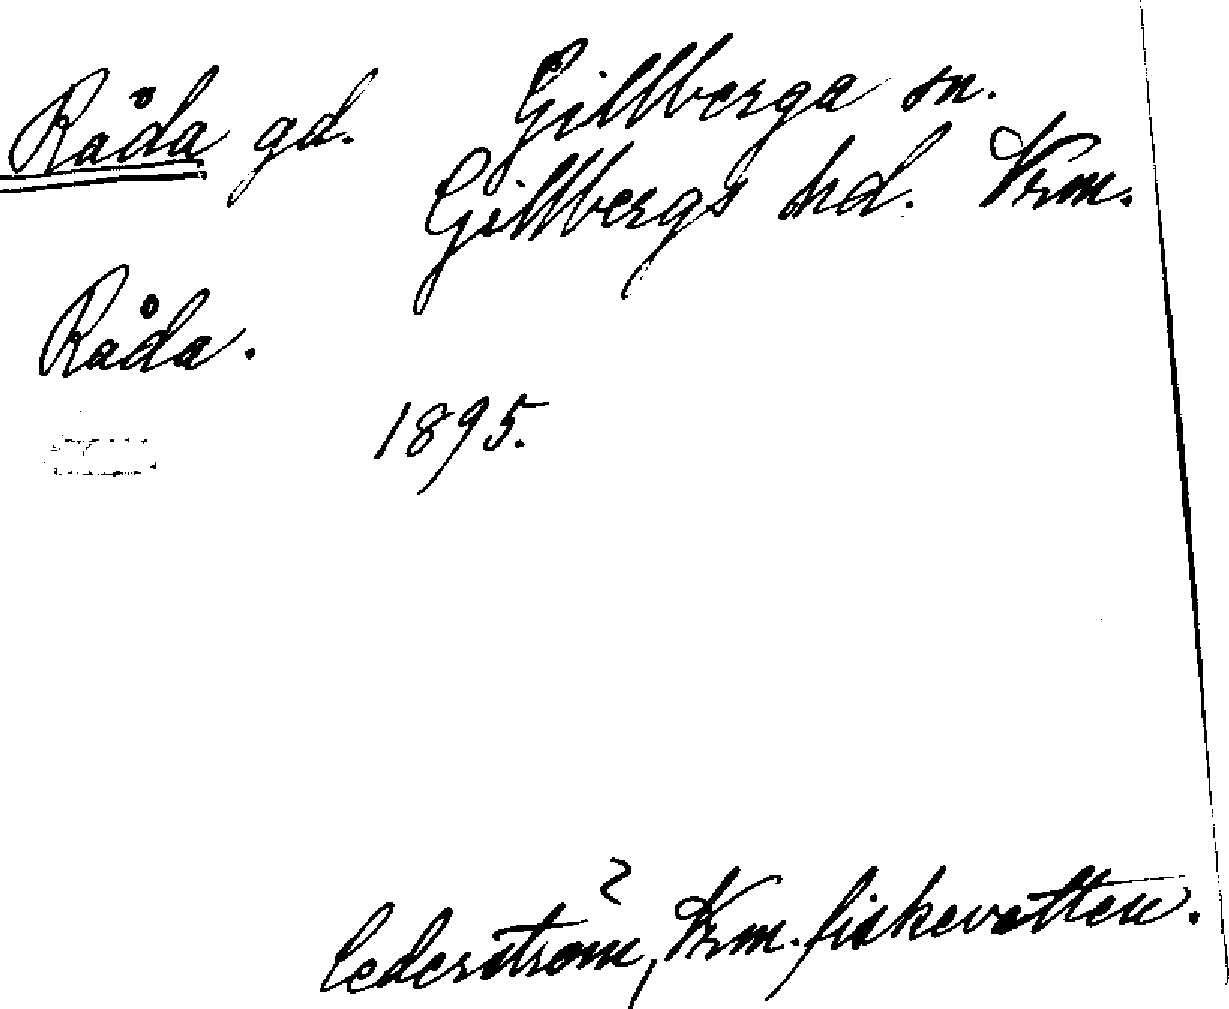 Råda gd. Gillberga sn.
Gillbergs hd. Vrm.
Råda.
1895.
Cederström, Vrm. fiskevatten.